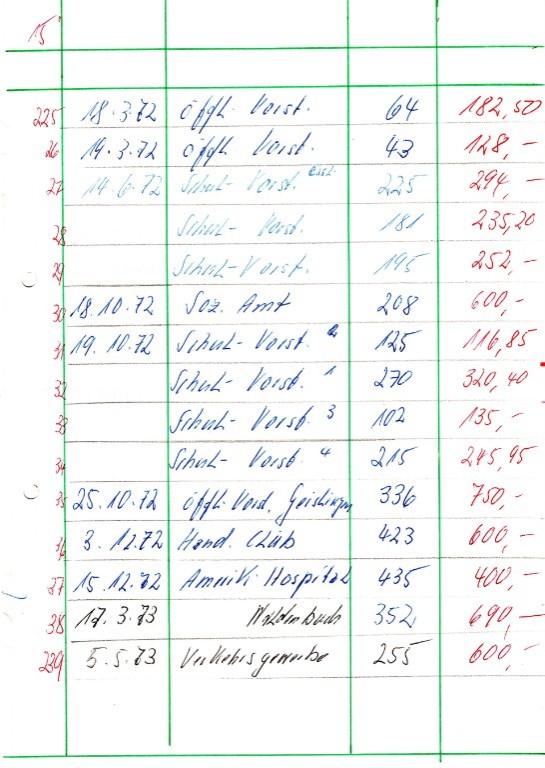 15
225 18.3.72 öfftl. Vorst. 64 182,50
26 19.3.72 öfftl. Vorst. 43 128,-
27 14.6.72 Schul-Vorst. 225 294,-
28 Schul-Vorst. 181 235,20
29 Schul-Vorst. 195 252,-
30 18.10.72 Soz. Amt 208 600,-
31 19.10.72 Schul-Vorst. 2 125 116,85
32 Schul-Vorst. 1 270 320,40
33 Schul-Vorst. 3 102 135,-
34 Schul-Vorst. 4 215 245,95
35 25.10.72 öfftl. Geislingen 336 750,-
36 3.12.72 Hand. Club 423 600,-
37 15.12.72 Amerik. Hospital 435 400,-
38 17.3.73 Waldenbuch 352 690,-
239 5.5.73 Verkehrsgewerbe 255 600,-